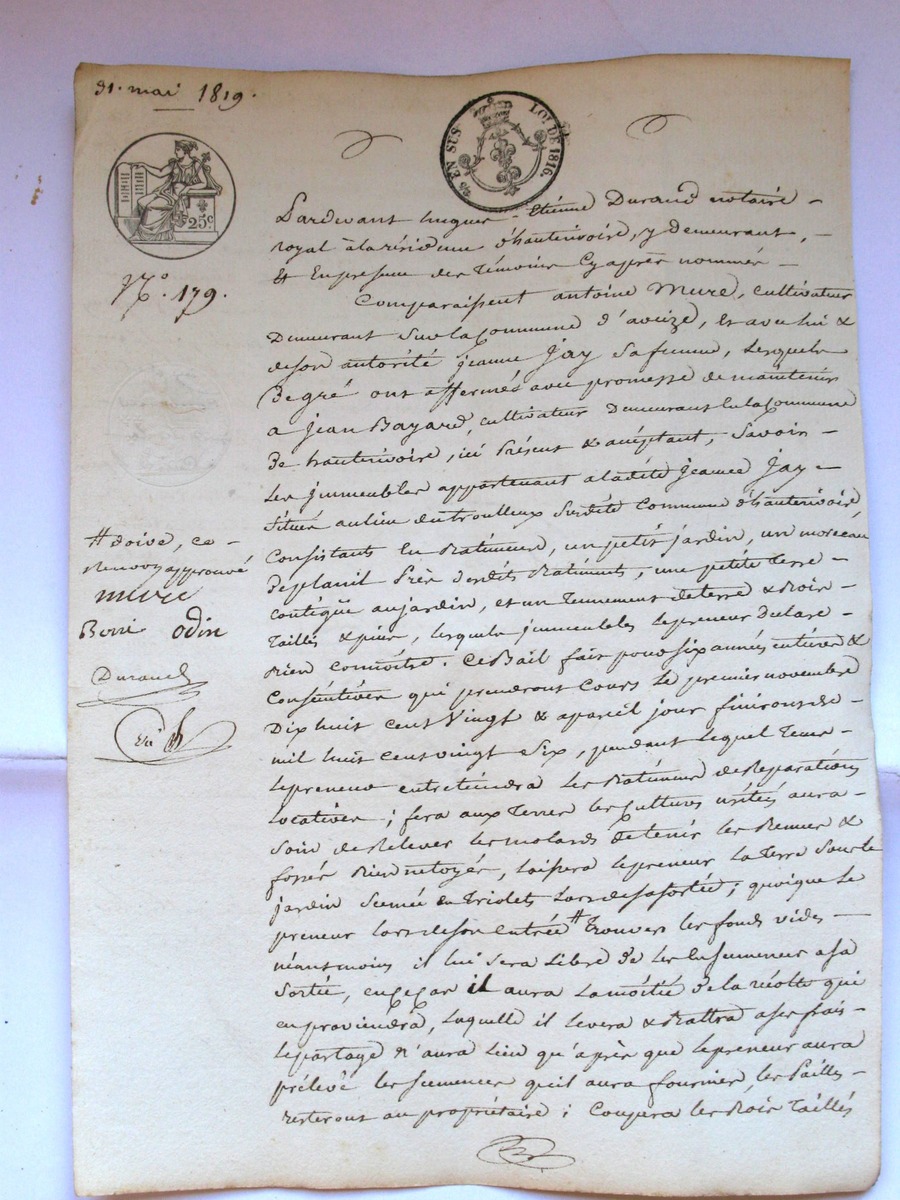 31. mai 1819.
EN SUS LOI DE 1816.
25c.
N.o 179.
Pardevant hugues-Etienne Durand notaire
royal à la résidence d'hauterivoire, y demeurant,
Et En presence des témoins Cy après nommés
Comparaissent antoine Mure, cultivateur
Demeurant Sur la Commune d'aveize, et avec lui &
de son autorité jeanne Jay Sa femme, Lesquels
De gré ont affermés avec promesse de maintenir
a Jean Bayard, cultivateur Demeurant en la Commune
De hauterivoire, ici Présent & acéptant, Savoir
Les immeubles appartenant à ladite jeanne Jay
Situés au lieu du trouilleux Susdite Commune d'hauterivoire,
Consistants En Batiments, un petit jardin, un morceau
de Près desdits Batiments, une petite terre
contigüe au jardin, et un tennement de terre & Bois
taillis & pins, lesquels immeubles le preneur Déclare
Bien connoitre. Ce Bail fait pour six années entieres &
Consécutives qui prendront Cours Le premier novembre
Dix huit cent Vingt & a pareil jour finiront de
mil huit cent vingt Six, pendant Lequel Tems
Le preneur entretiendra Les Batiments de Reparations
Locatives; fera aux Terres les Cultures usitées aura
Soin de Relever les molards de tenir les &
fossés Bien netoyés, laissera le preneur La Terre Sous le
jardin Semée En Triolets Lors de sa sortie; quoique Le
preneur Lors de son entrée # Trouver les fonds vides
néantmoins il lui Sera Libre de les Ensemencer a sa
Sortie, en ce Cas il aura La moitié de la récolte qui
en proviendra, Laquelle il Levera & Battra a ses frais
Le partage n'aura Lieu qu'après que Le preneur aura
prélevé les Semences qu'il aura fournies, les Pailles
resteront au propriétaire; Coupera Les Bois Taillés
# doive, ce
Renvoy approuvé
mure
Berri odin
Durand